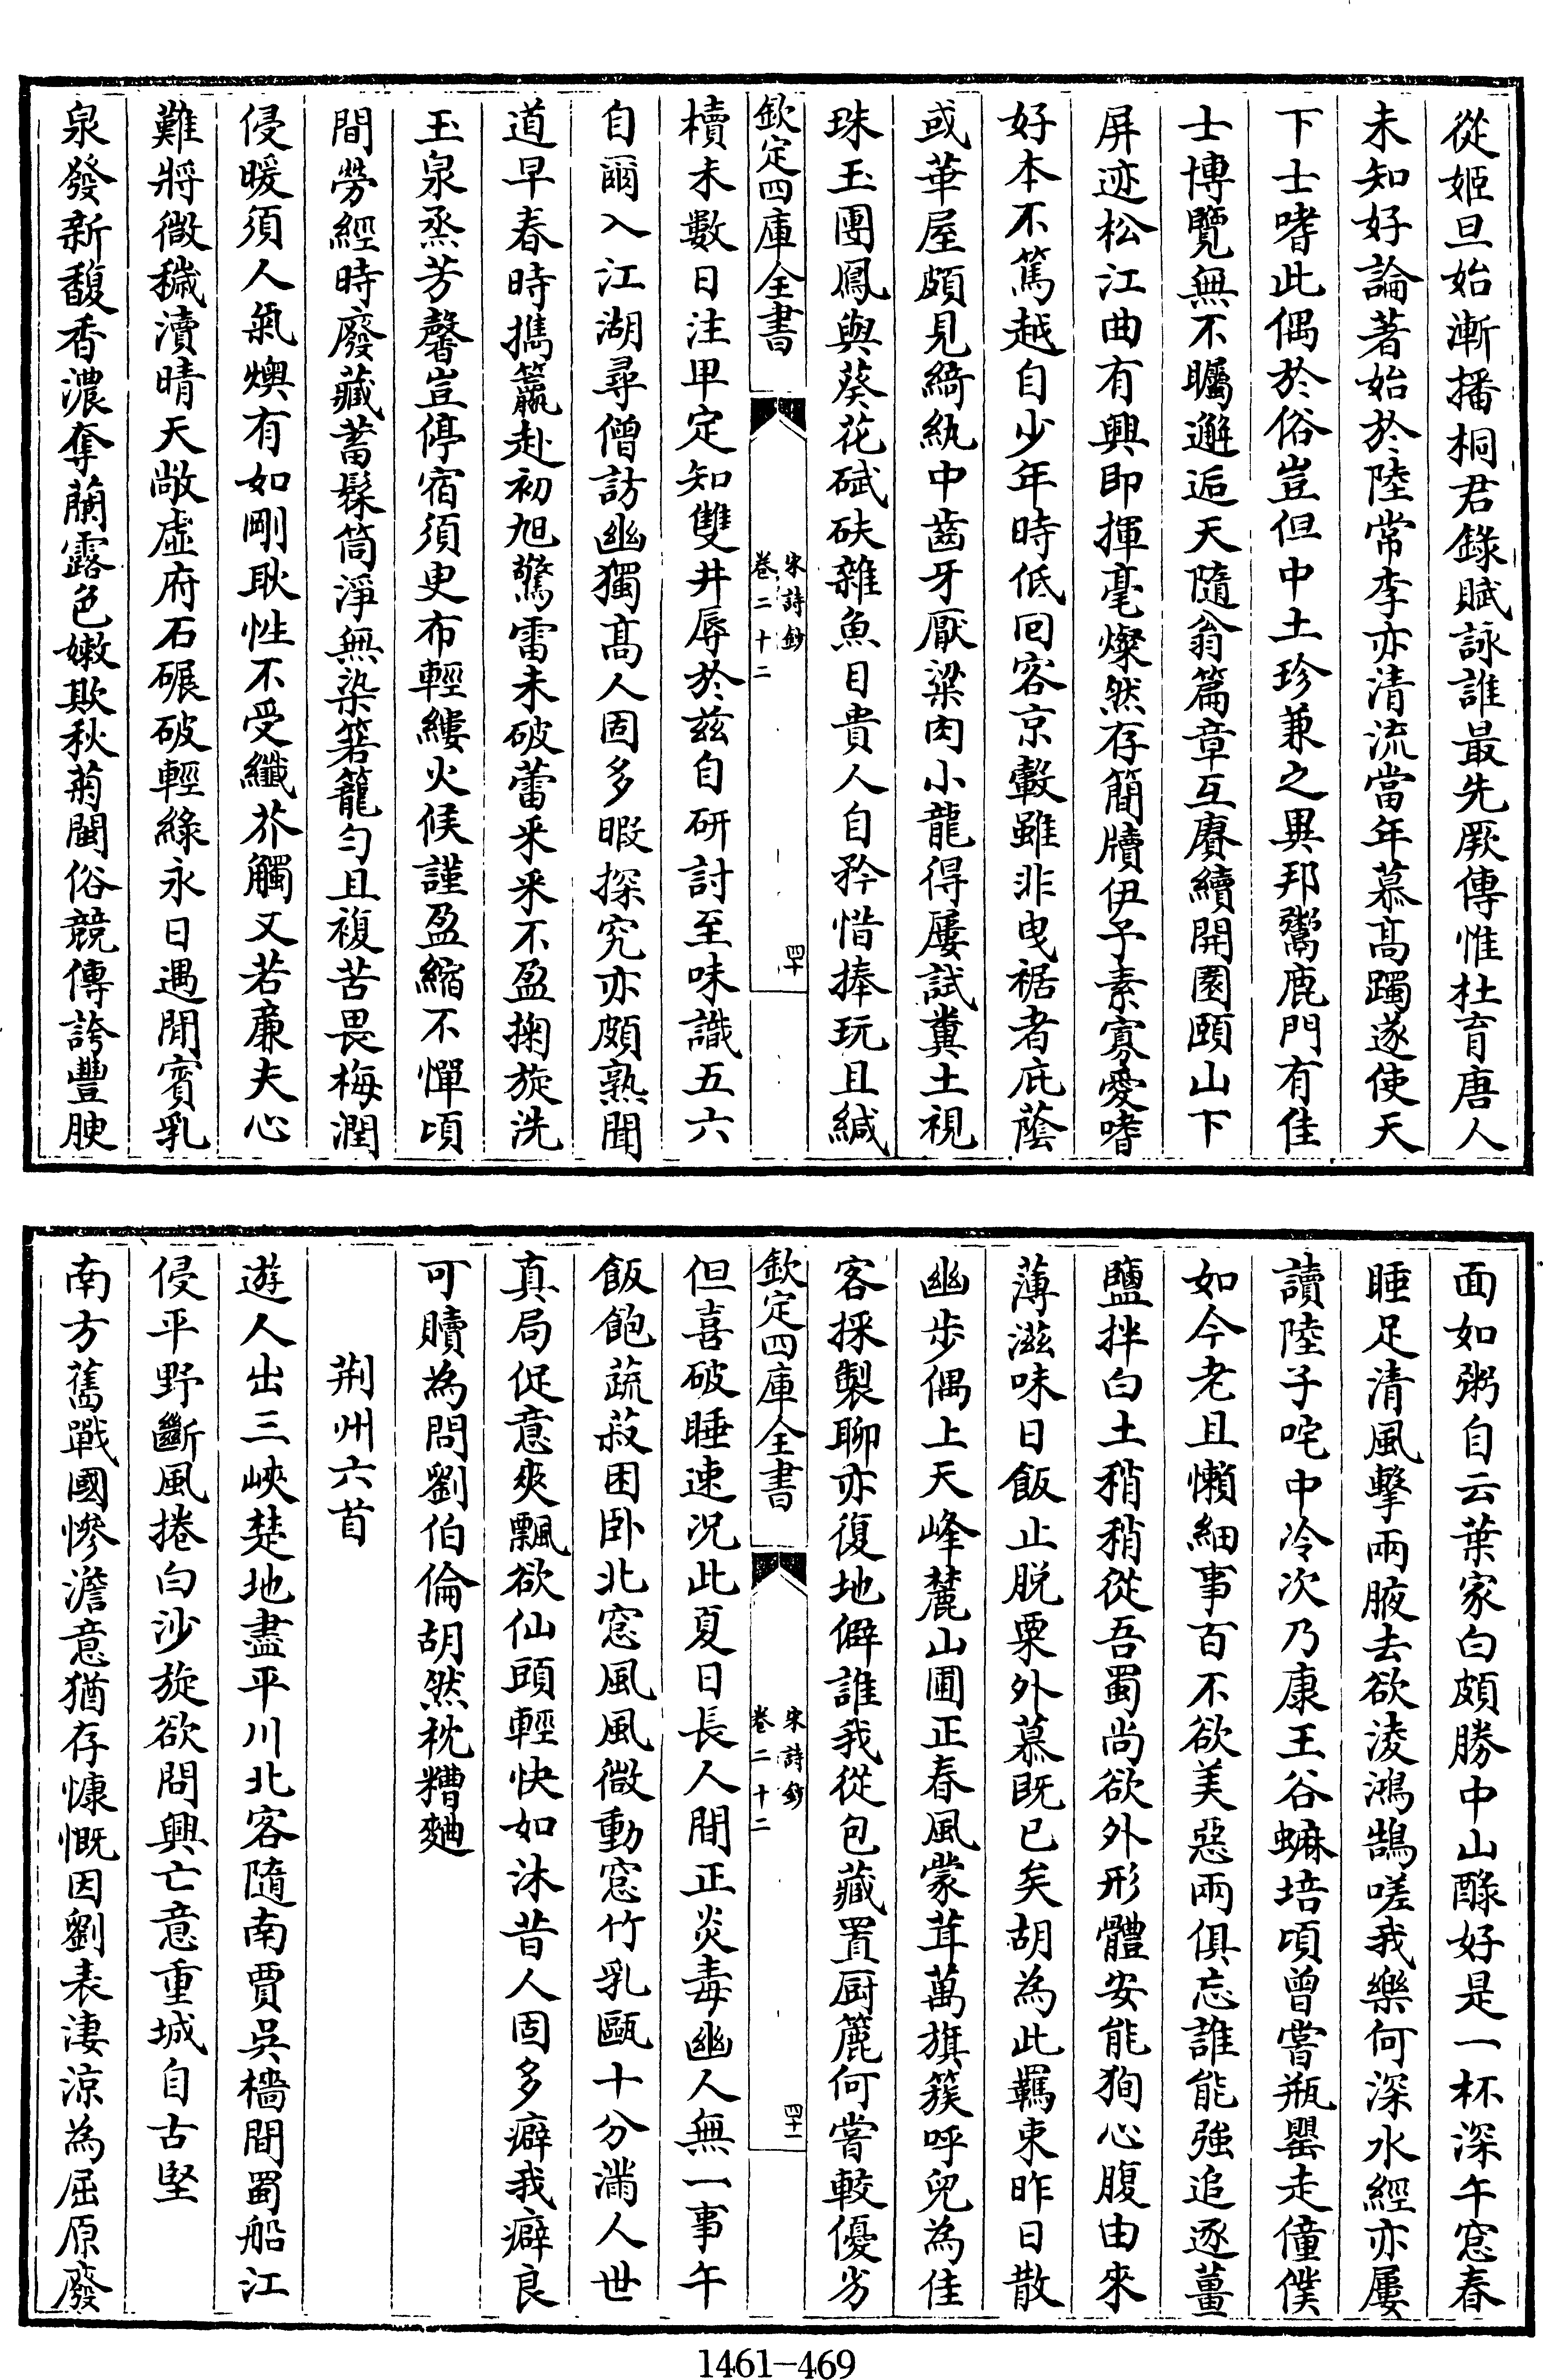 從姬旦始漸播桐君錄賦詠誰最先厥傳惟杜育唐人
未知好論著始於陸常李亦清流當年慕髙躅遂使天
下士嗜此偶於俗豈但中土珍兼之異邦鬻鹿門有佳
士博覽無不矚邂逅天隨翁篇章互賡續開園頤山下
屏迹松江曲有興即揮毫燦然存簡牘伊予素寡愛嗜
好本不篤越自少年時低回客京轂雖非曳裾者庇蔭
或華屋頗見綺紈中齒牙厭粱肉小龍得屢試糞土視
珠玉團鳳與葵花碔砆雜魚目貴人自矜惜捧玩且緘
欽定四庫全書
宋詩鈔
卷二十二
四十
櫝未數日注甲定知雙井辱於兹自研討至味識五六
自爾入江湖尋僧訪幽獨髙人固多暇探究亦頗熟聞
道早春時攜籯赴初旭驚雷未破蕾采采不盈掬旋洗
玉泉烝芳馨豈停宿須臾布輕縷火候謹盈縮不憚頃
間勞經時廢藏蓄髹筒淨無染箬籠勻且複苦畏梅潤
侵暖須人氣燠有如剛耿性不受纖芥觸又若亷夫心
難將微穢瀆晴天敞虛府石碾破輕綠永日遇閒賓乳
泉發新馥香濃奪蘭露色嫩欺秋菊閩俗競傳誇豐腴
面如粥自云葉家白頗勝中山醁好是一杯深午窓春
睡足清風擊兩腋去欲淩鴻鵠嗟我樂何深水經亦屢
讀陸子咤中泠次乃康王谷蟆培頃曾嘗瓶罌走僮僕
如今老且懶細事百不欲美惡兩俱忘誰能強追逐薑
鹽拌白土稍稍從吾蜀尚欲外形體安能狥心腹由來
薄滋味日飯止脫粟外慕既已矣胡為此羈束昨日散
幽步偶上天峰麓山圃正春風蒙茸萬旗簇呼兒為佳
客採製聊亦復地僻誰我從包藏置厨簏何嘗較優劣
欽定四庫全書
宋詩鈔
卷二十二
四十一
但喜破睡速況此夏日長人間正炎毒幽人無一事午
飯飽蔬菽困卧北窓風風微動窓竹乳甌十分滿人世
真局促意爽飄欲仙頭輕快如沐昔人固多癖我癖良
可贖為問劉伯倫胡然枕糟麯
荆州六首
遊人出三峽楚地盡平川北客隨南賈吳檣間蜀船江
侵平野斷風捲白沙旋欲問興亡意重城自古堅
南方舊戰國慘澹意猶存慷慨因劉表淒涼為屈原廢
1461-469